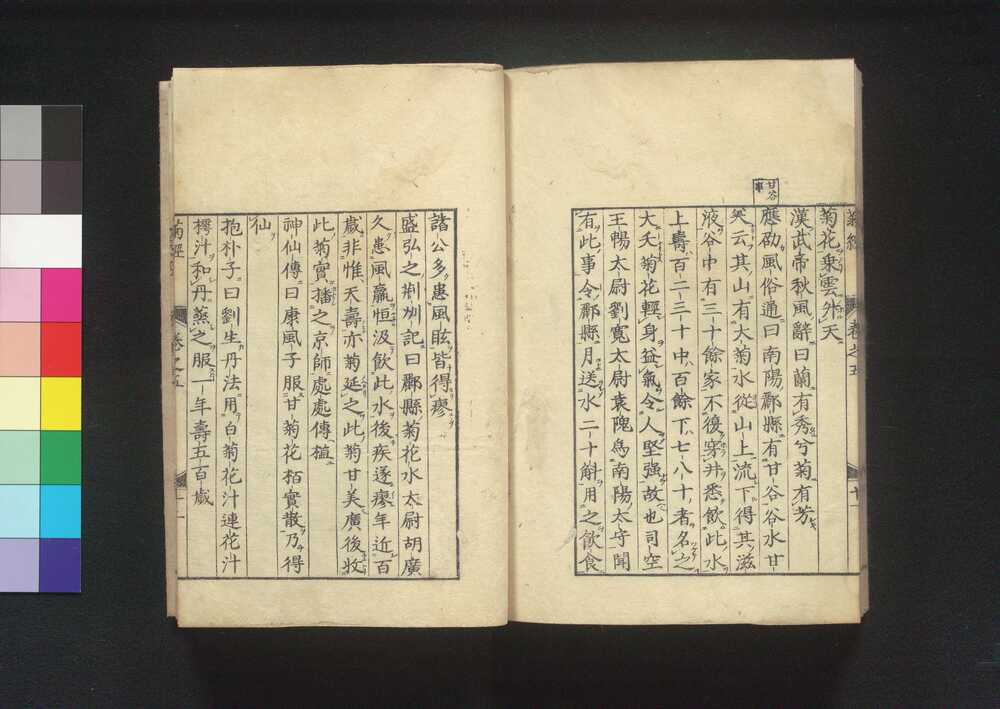 菊花乗雲外天
漢武帝秋風辭曰蘭有秀兮菊有芳
甘谷
應劭風俗通曰南陽酈縣有甘谷谷水甘
美云其山有大菊水從山上流下得其滋
液谷中有三十餘家不復穿井悉飲此水
上壽百二三十中百餘下七八十者名之
大夭菊花輕身益氣令人堅强故也司空
王暢太尉劉寬太尉袁隗為南陽太守聞
有此事令酈縣月送水二十斛用之飲食
諸公多患風眩皆得瘳
盛弘之荊州記曰酈縣菊花水太尉胡廣
久患風羸恒汲飲此水後疾遂瘳年近百
歲非惟天壽亦菊延之此菊甘美廣後收
此菊實播之京師處處傳植
神仙傳曰康風子服甘菊花栢實散乃得
仙
抱朴子曰劉生丹法用白菊花汁連花汁
樗汁和丹蒸之服一年壽五百歲
菊經 卷之五 十一